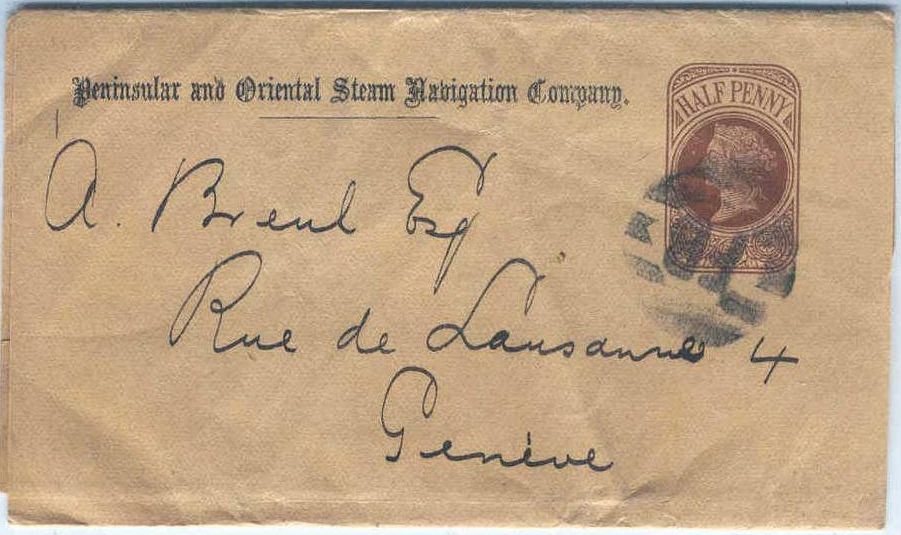 Peninsular and Oriental Steam Navigation Company.
HALFPENNY
A. Breul Esq
Rue de Lausanne 4
Genève